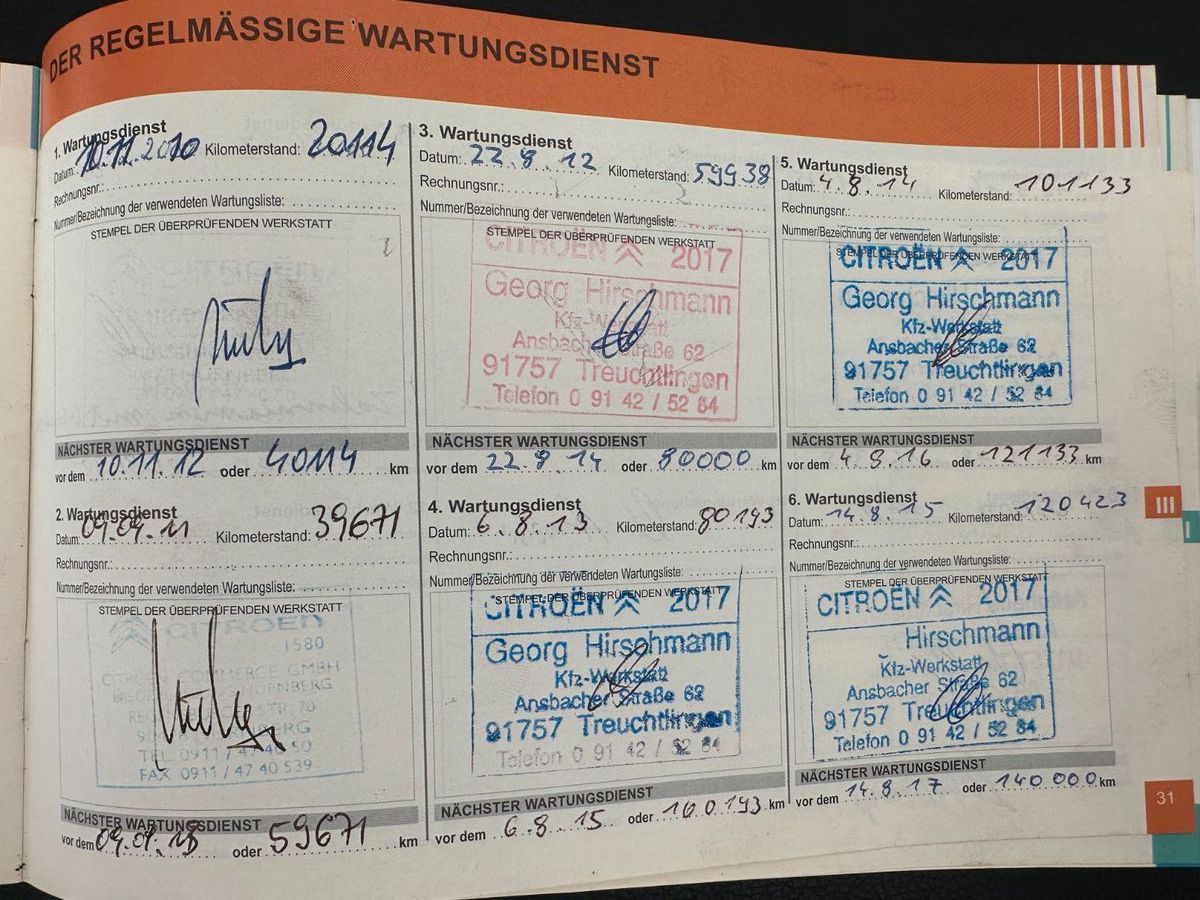 DER REGELMÄSSIGE WARTUNGSDIENST
1. Wartungsdienst
Datum: 10.11.2010 Kilometerstand: 20114
Rechnungsnr.:
Nummer/Bezeichnung der verwendeten Wartungsliste:
STEMPEL DER ÜBERPRÜFENDEN WERKSTATT
NÄCHSTER WARTUNGSDIENST
vor dem 10.11.12 oder 40114 km
2. Wartungsdienst
Datum: 09.09.11 Kilometerstand: 39671
Rechnungsnr.:
Nummer/Bezeichnung der verwendeten Wartungsliste:
STEMPEL DER ÜBERPRÜFENDEN WERKSTATT
CITROËN
1580
CITROËN COMMERCE GMBH
TEL. 0911 / 47 40 50
FAX 0911 / 47 40 539
NÄCHSTER WARTUNGSDIENST
vor dem 09.09.13 oder 59671 km
3. Wartungsdienst
Datum: 22.8.12 Kilometerstand: 59938
Rechnungsnr.:
Nummer/Bezeichnung der verwendeten Wartungsliste:
STEMPEL DER ÜBERPRÜFENDEN WERKSTATT
CITROËN 2017
Georg Hirschmann
Kfz-Werkstatt
Ansbacher Straße 62
91757 Treuchtlingen
Telefon 0 91 42 / 52 84
NÄCHSTER WARTUNGSDIENST
vor dem 22 8 14 oder 80000 km
4. Wartungsdienst
Datum: 6.8.13 Kilometerstand: 80193
Rechnungsnr.:
Nummer/Bezeichnung der verwendeten Wartungsliste:
STEMPEL DER ÜBERPRÜFENDEN WERKSTATT
CITROËN 2017
Georg Hirschmann
Kfz-Werkstatt
Ansbacher Straße 62
91757 Treuchtlingen
Telefon 0 91 42 / 52 84
NÄCHSTER WARTUNGSDIENST
vor dem 6.8.15 oder 100193 km
5. Wartungsdienst
Datum: 4.8.14 Kilometerstand: 101133
Rechnungsnr.:
Nummer/Bezeichnung der verwendeten Wartungsliste:
STEMPEL DER ÜBERPRÜFENDEN WERKSTATT
CITROËN 2017
Georg Hirschmann
Kfz-Werkstatt
Ansbacher Straße 62
91757 Treuchtlingen
Telefon 0 91 42 / 52 84
NÄCHSTER WARTUNGSDIENST
vor dem 4.8.16 oder 121133 km
6. Wartungsdienst
Datum: 14.8.15 Kilometerstand: 120423
Rechnungsnr.:
Nummer/Bezeichnung der verwendeten Wartungsliste:
STEMPEL DER ÜBERPRÜFENDEN WERKSTATT
CITROËN 2017
Hirschmann
Kfz-Werkstatt
Ansbacher Straße 62
91757 Treuchtlingen
Telefon 0 91 42 / 52 84
NÄCHSTER WARTUNGSDIENST
vor dem 14.8.17 oder 140000 km
III
31